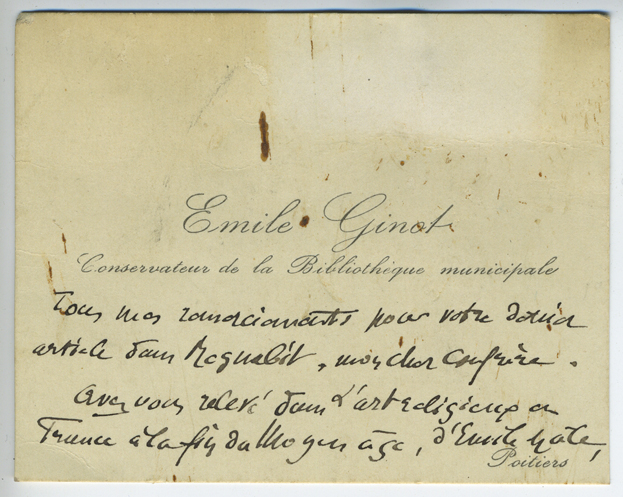 Emile Ginot
Conservateur de la Bibliothèque municipale
Tous mes remerciements pour votre dernier
article dans , mon cher confrère.
Avez vous relevé dans L'art religieux en
France à la fin du Moyen âge, d'Emile Male,
Poitiers